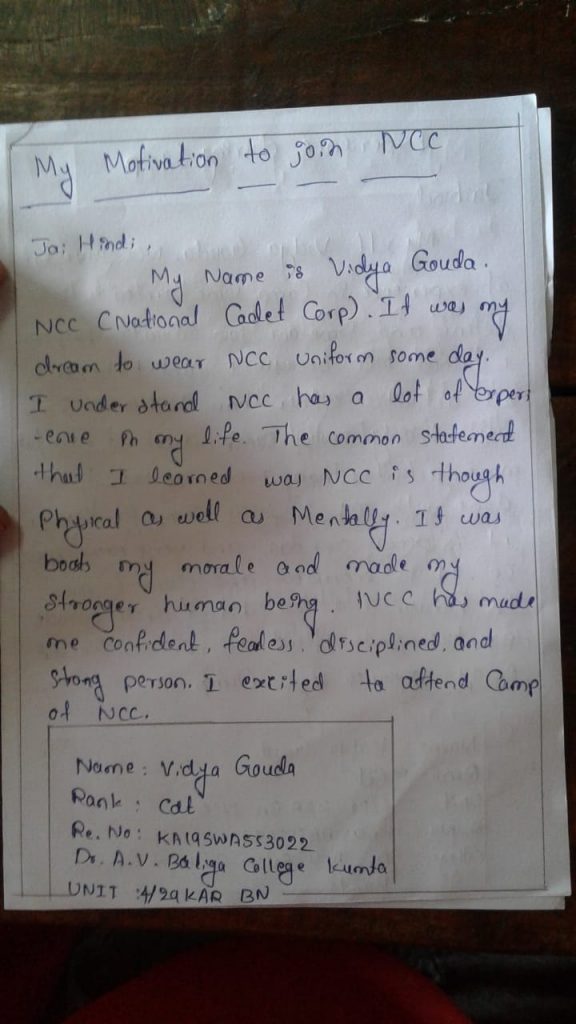 My Motivation to join NCC
Jai Hindi,
My Name is Vidya Gouda.
NCC (National Cadet Corp). It was my
dream to wear NCC uniform some day.
I understand NCC has a lot of experi
-ence in my life. The common statement
that I learned was NCC is though
Physical as well as Mentally. It was
boots my morale and made my
stronger human being. NCC has made
me confident, fearless, disciplined, and
strong person. I excited to attend Camp
of NCC.
Name: Vidya Gouda
Rank: Cdt
Re. No: KA19SWA553022
Dr. A.V. Baliga College Kumta
UNIT :4/29 KAR BN